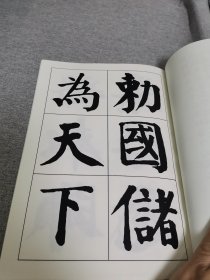 勅國儲
為天下